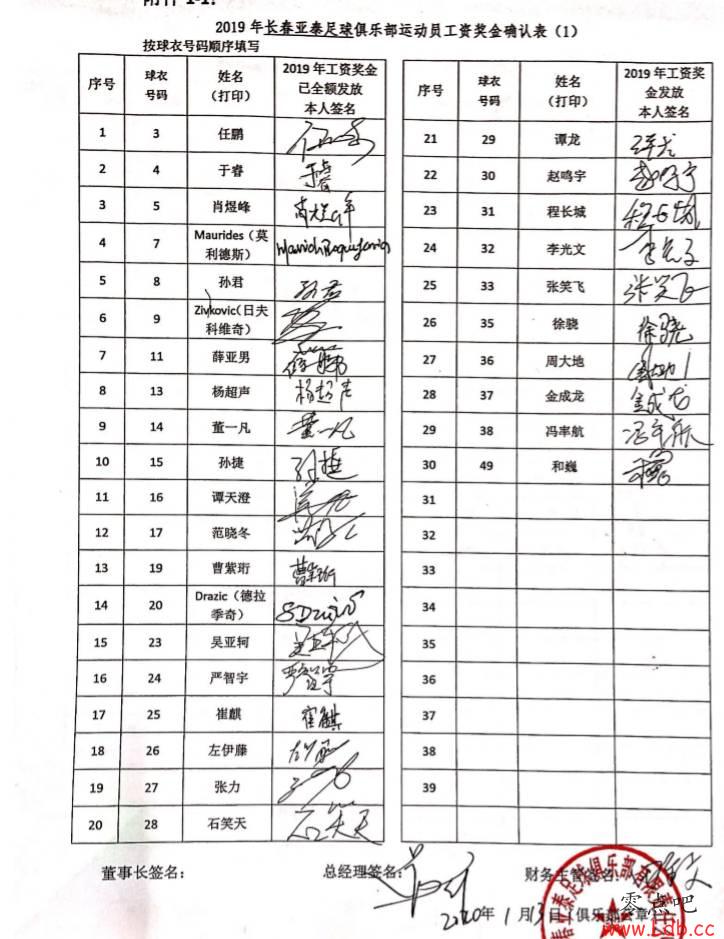 附件 1-1:
2019 年长春亚泰足球俱乐部运动员工资奖金确认表（1）
按球衣号码顺序填写
序号 球衣号码 姓名（打印） 2019 年工资奖金已全额发放本人签名
1 3 任鹏
2 4 于睿 于睿
3 5 肖煜峰
4 7 Maurides（莫利德斯）
5 8 孙君 孙君
6 9 Zivkovic（日夫科维奇）
7 11 薛亚男
8 13 杨超声 杨超声
9 14 董一凡 董一凡
10 15 孙捷 孙捷
11 16 谭天澄
12 17 范晓冬
13 19 曹紫珩 曹紫珩
14 20 Drazic（德拉季奇）
15 23 吴亚轲
16 24 严智宇 严智宇
17 25 崔麒 崔麒
18 26 左伊藤
19 27 张力
20 28 石笑天 石笑天
序号 球衣号码 姓名（打印） 2019 年工资奖金发放本人签名
21 29 谭龙 谭龙
22 30 赵鸣宇 赵鸣宇
23 31 程长城 程长城
24 32 李光文
25 33 张笑飞 张笑飞
26 35 徐骁 徐骁
27 36 周大地
28 37 金成龙 金成龙
29 38 冯率航 冯率航
30 49 和巍
31
32
33
34
35
36
37
38
39
董事长签名： 总经理签名： 财务主管签名：
2020年 1 月 13 日（俱乐部公章）
零点吧
www.Ldb.cc